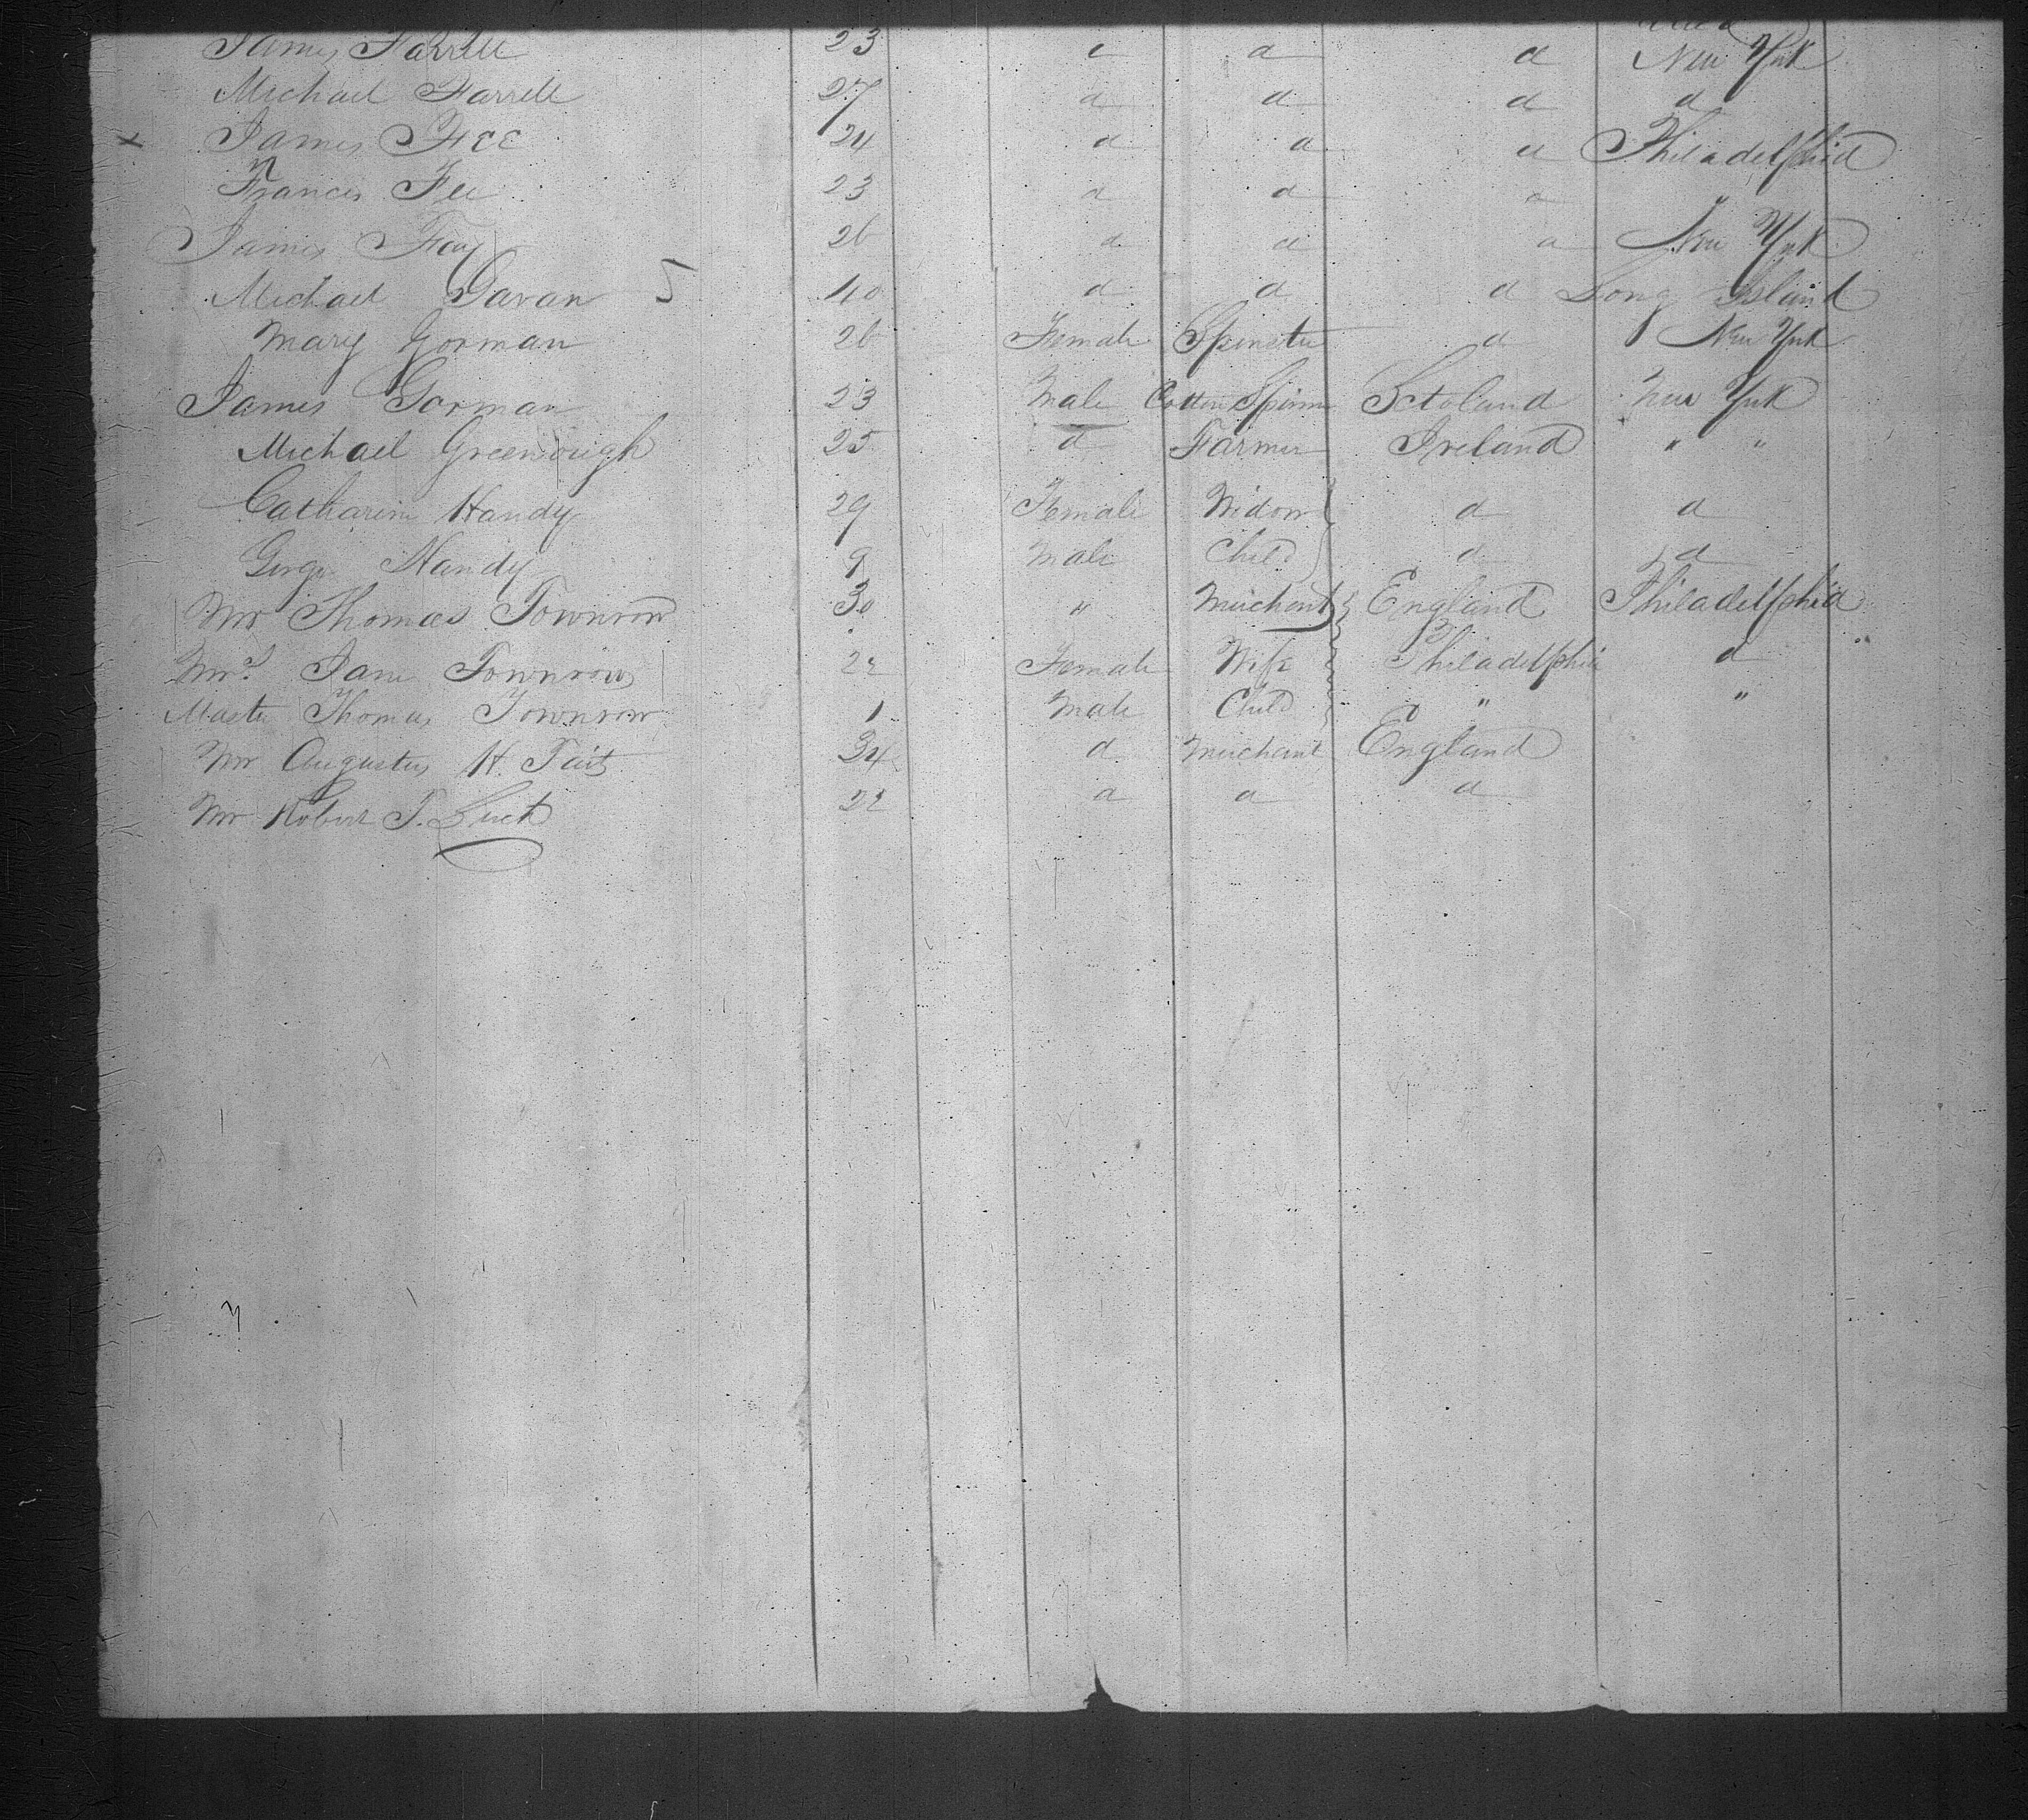 James Farrell 23 d d d New York
Michael Farrell 27 d d d d
x James Fee 24 d d d Philadelphia
Francis Fee 23 d d d "
James Fay 26 d d d New York
Michael Gavan 5 40 d d d Long Island
Mary Gorman 26 Female Spinster d New York
James Gorman 23 Male Cotton Spinner Sctoland New York
Michael Greenough 25 d Farmer Ireland " "
Catharine Handy 29 Female Widow d d
Gorge Handy 9 Male Child d d
Mr Thomas Townrow 30 " Merchant England Philadelphia
Mrs Jane Townrow 22 Female Wife Philadelphia d
Master Thomas Townrow 1 Male Child " "
Mr Augustus H. Tait 34 d Merchant England
Mr Robert T. 22 d d d